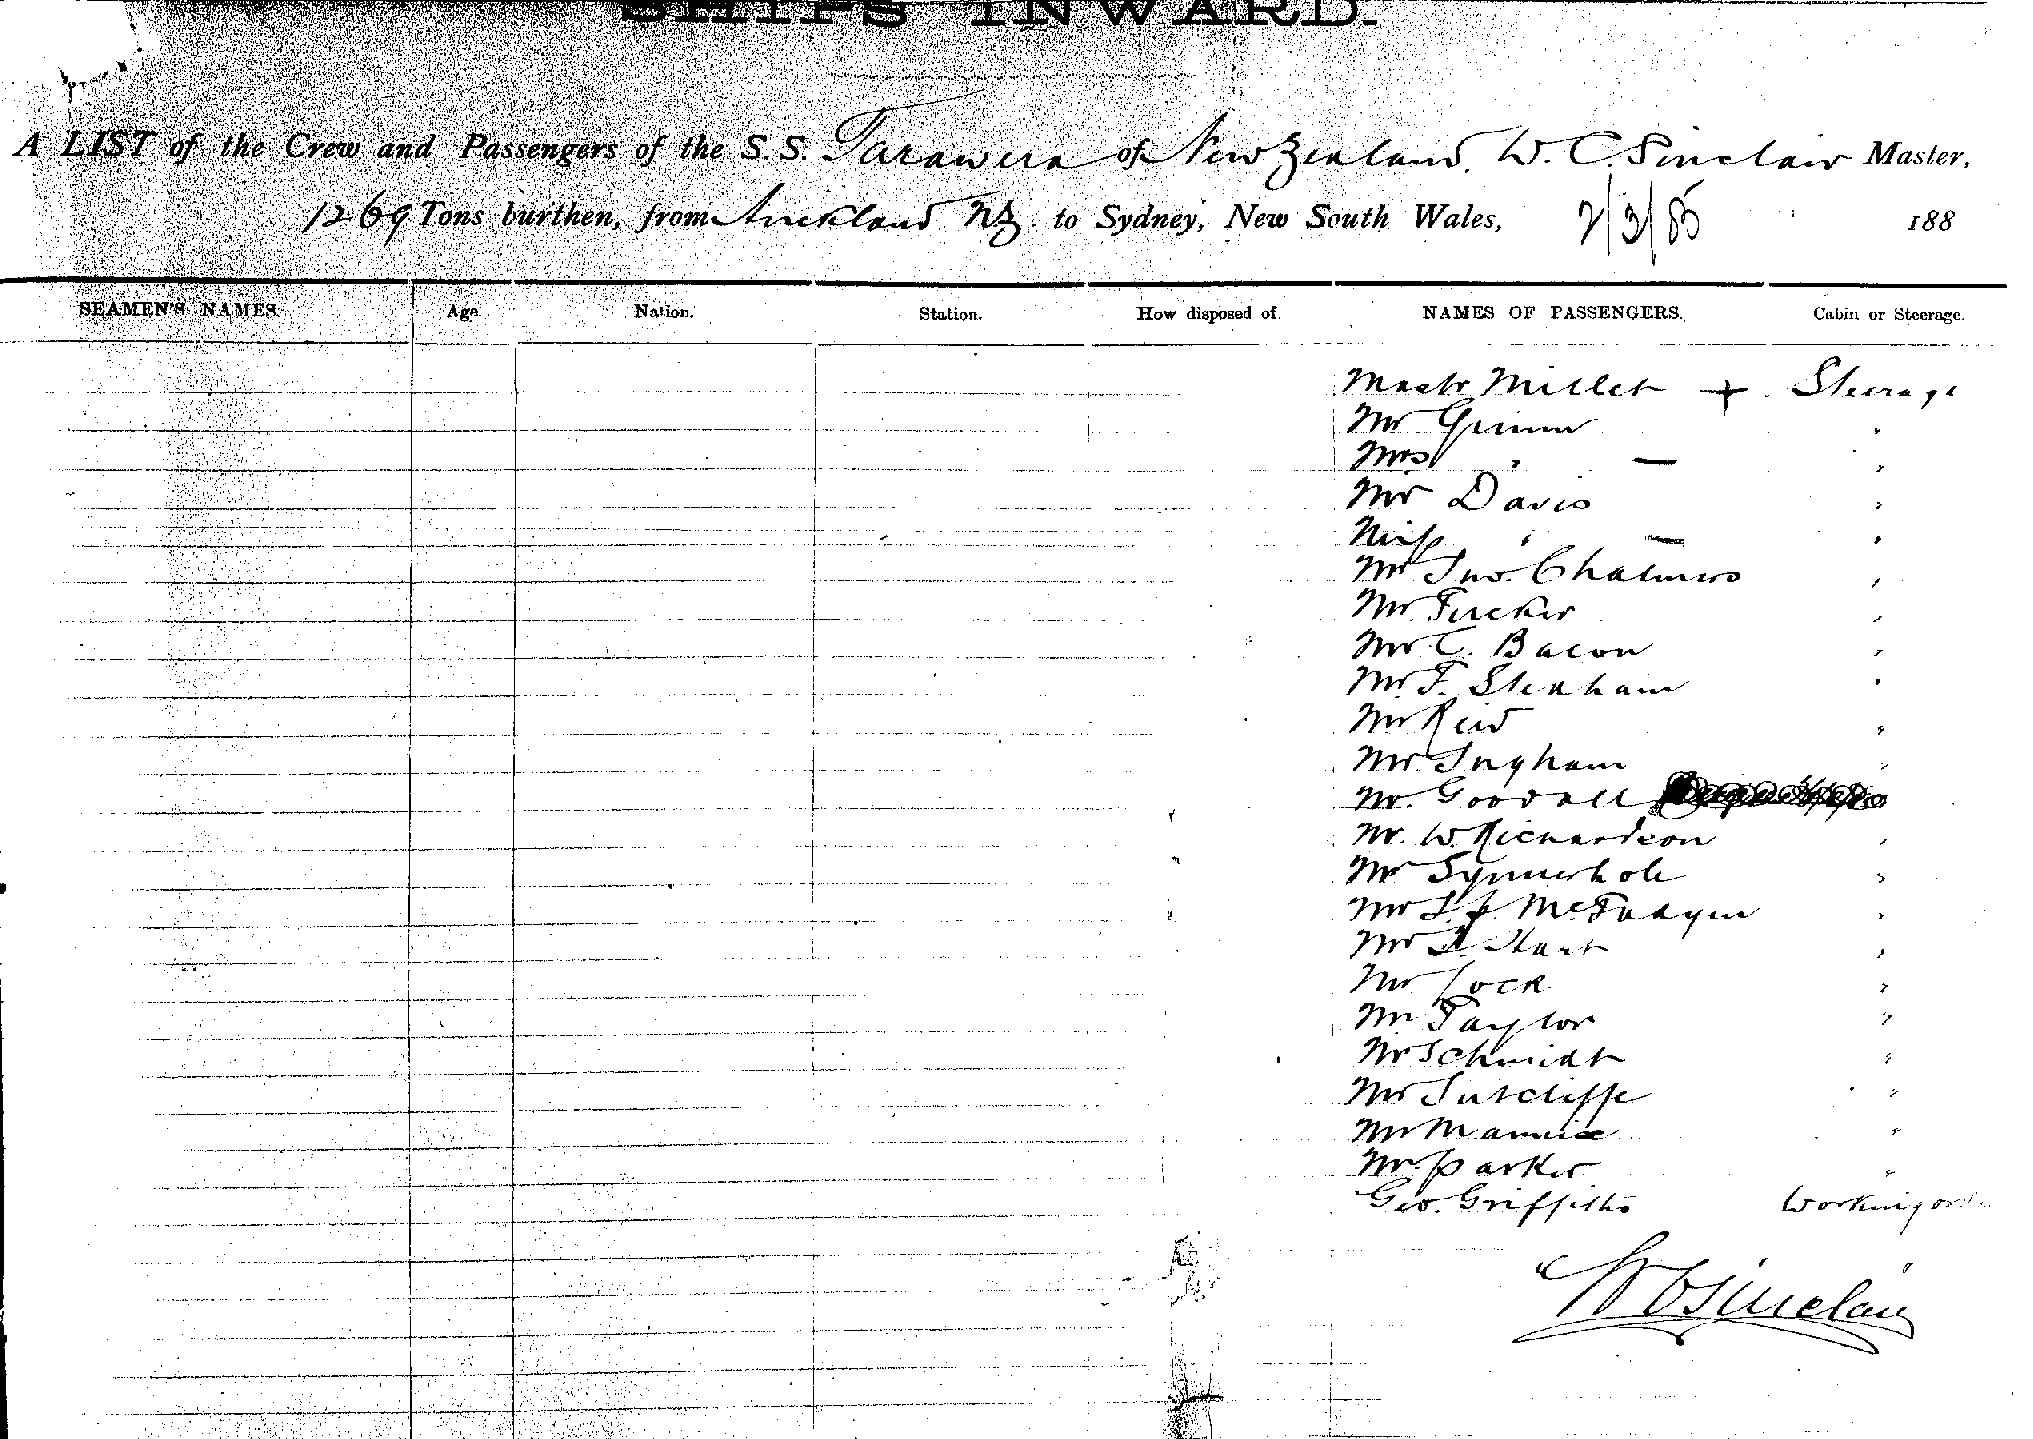 SHIPS INWARD.
A LIST of the Crew and Passengers of the S.S. Tarawera of New Zealand, W. C. Sinclair Master,
1269 Tons burthen, from Auckland NZ to Sydney, New South Wales, 2/3/85 188
SEAMEN'S NAMES Age Nation. Station. How disposed of. NAMES OF PASSENGERS. Cabin or Steerage.
Mastr Millet + Steerage
Mr Grimm "
Mrs " — "
Mr Davis "
Miss " — "
Mr Jno. Chalmers "
Mr Tucker "
Mr C. Bacon "
Mr F. Stenham "
Mr Reid "
Mr Ingham "
Mr. Goodall
Mr. W. Richardson "
Mr "
Mr McFadyen "
Mr Hart "
Mr Lock "
Mr Taylor "
Mr Schmidt "
Mr Sutcliffe "
Mr Mannix "
Mr Parker "
Geo. Griffiths Working
W C Sinclair